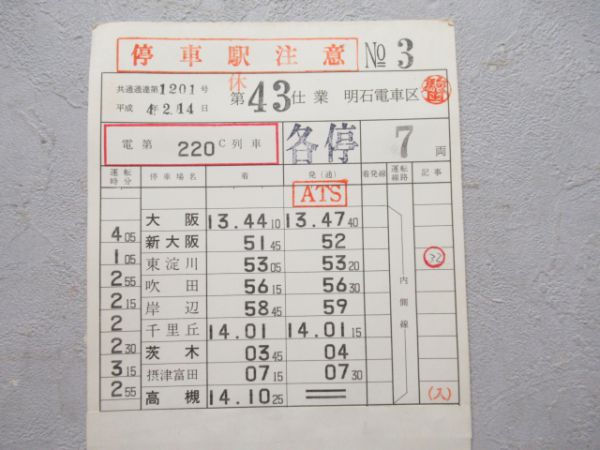 停車駅注意 No 3
共通通達第1201号 休
平成 4年2.14日 第43仕業 明石電車区
電第 220C列車 各停 7両
運転時分 停車場名 着 発(通) 着発線 運転線路 記事
ATS
大阪 13.44 10 13.47 40
4 05 新大阪 51 45 52
1 05 東淀川 53 05 53 20 22
2 55 吹田 56 15 56 30
2 15 岸辺 58 45 59 内側線
2 千里丘 14.01 14.01 15
2 30 茨木 03 45 04
3 15 摂津富田 07 15 07 30
2 55 高槻 14.10 25 (入)